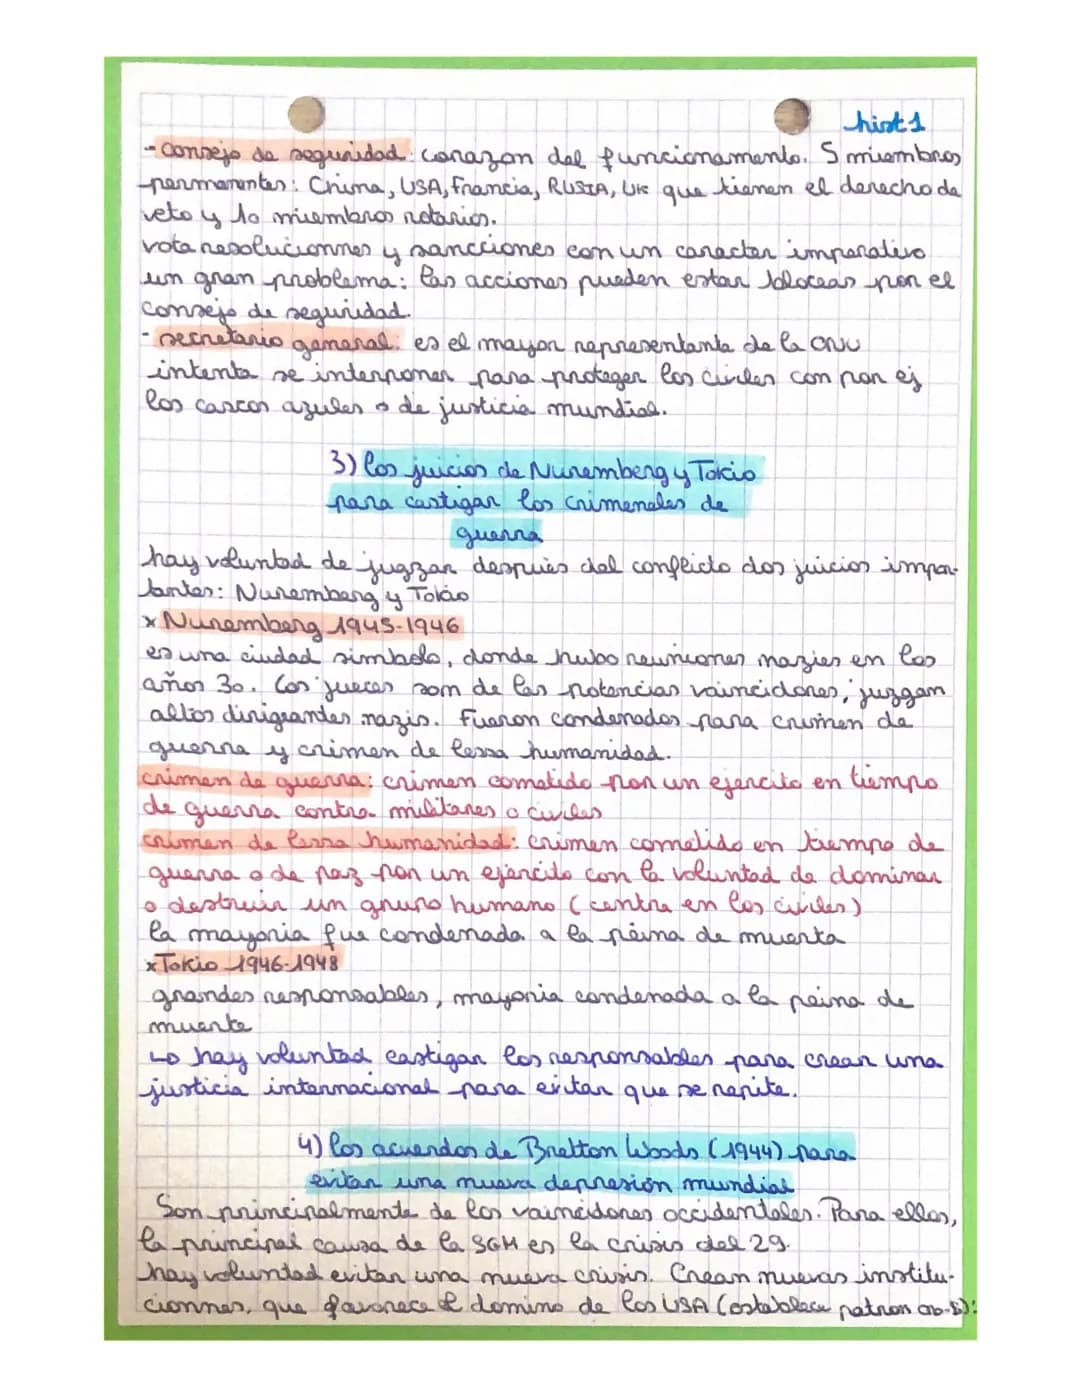 hist 1
- consejo de seguridad: corazon del funcionamento. 5 miembros
permanentes: China, USA, Francia, RUSIA, UK que tienen el derecho de
veto y 10 miembros rotarios.
vota resolucionnes y sancciones con un caracter imperativo
un gran problema: las acciones pueden estar bloceas por el
consejo de seguridad.
- secretario general: es el mayor representante de la ONU
intenta se interponer para proteger los civiles con por ej
los cascos azules o de justicia mundial.
3) los juicios de Nuremberg y Tokio
para castigar los crimenales de
guerra
hay voluntad de jugzar despuès del conflicto dos juicios impor-
tantes: Nuremberg y Tokio
x Nuremberg 1945-1946
es una ciudad simbolo, donde hubo reuniones nazies en los
años 30. Los jueces son de las potencias vaincidores, juzgan
altos dirigeantes nazis. Fueron condenados para crimen de
guerra y crimen de lessa humanidad.
crimen de guerra: crimen cometido por un ejercito en tiempo
de guerra contra militares o civiles
crimen de lessa humanidad: crimen cometido en tiempo de
guerra o de paz por un ejercito con la voluntad de dominar
o destruir un grupo humano (centra en los civiles)
la mayoria fue condenada a la peina de muerta
x Tokio 1946-1948
grandes responsables, mayoria condenada a la peina de
muerte
↳ hay voluntad castigar los responsables para crear una
justicia internacional para evitar que se repite.
4) los acuerdos de Bretton Woods (1944) para
evitar una nueva depresión mundial
Son principalmente de los vaincidores occidentales. Para ellos,
la principal causa de la SGM es la crisis del 29.
hay voluntad evitar una nueva crisis. Crean nuevas institu-
cionnes, que favorece el domino de los USA (establece patron oro-$):